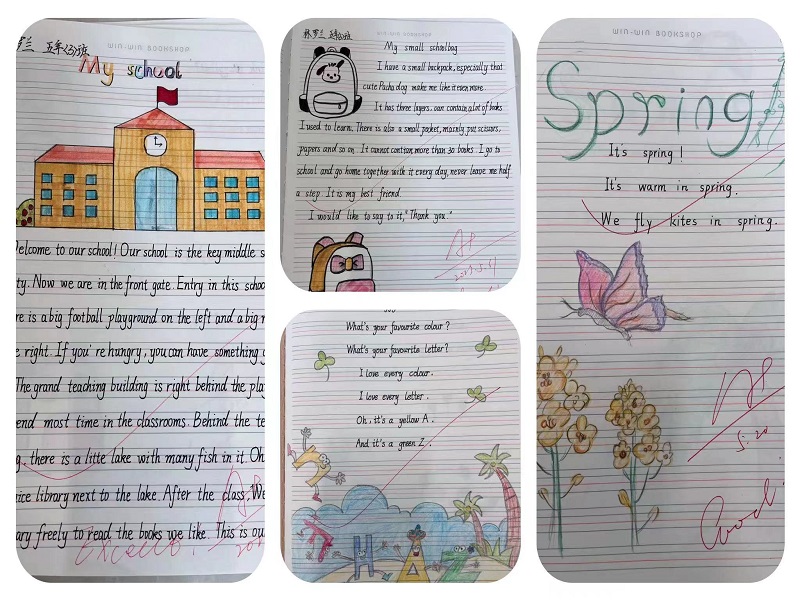 罗兰 五年(3)班
WIN-WIN BOOKSHOP
My school
elcome to our school! Our school is the key middle s
ty. Now we are in the front gate. Entry in this schoo
re is a big football playground on the left and a big
right. If you're hungry, you can have something
The grand teaching building is right behind the pla
end most time in the classrooms. Behind the te
g, there is a litte lake with many fish in it. Oh
ice library next to the lake. After the class, We
ary freely to read the books we like. This is ou
WIN-WIN BOOKSHOP
My small schoolbag
I have a small backpack, especially that
cute Pacha dog make me like it even more
It has three layers, can contain a lot of books
I used to learn. There is also a small pocket, mainly put scissors,
papers and so on. It cannot contain more than 30 books. I go to
school and go home together with it every day, never leave me half
a step. It is my best friend.
I would like to say to it, "Thank you."
What's your favourite colour?
What's your favourite letter?
I love every colour.
I love every letter.
Oh, it's a yellow A.
And it's a green Z.
H A Z
WIN-WIN BOOKSHOP
Spring
It's spring!
It's warm in spring.
We fly kites in spring.
5.20
Good!